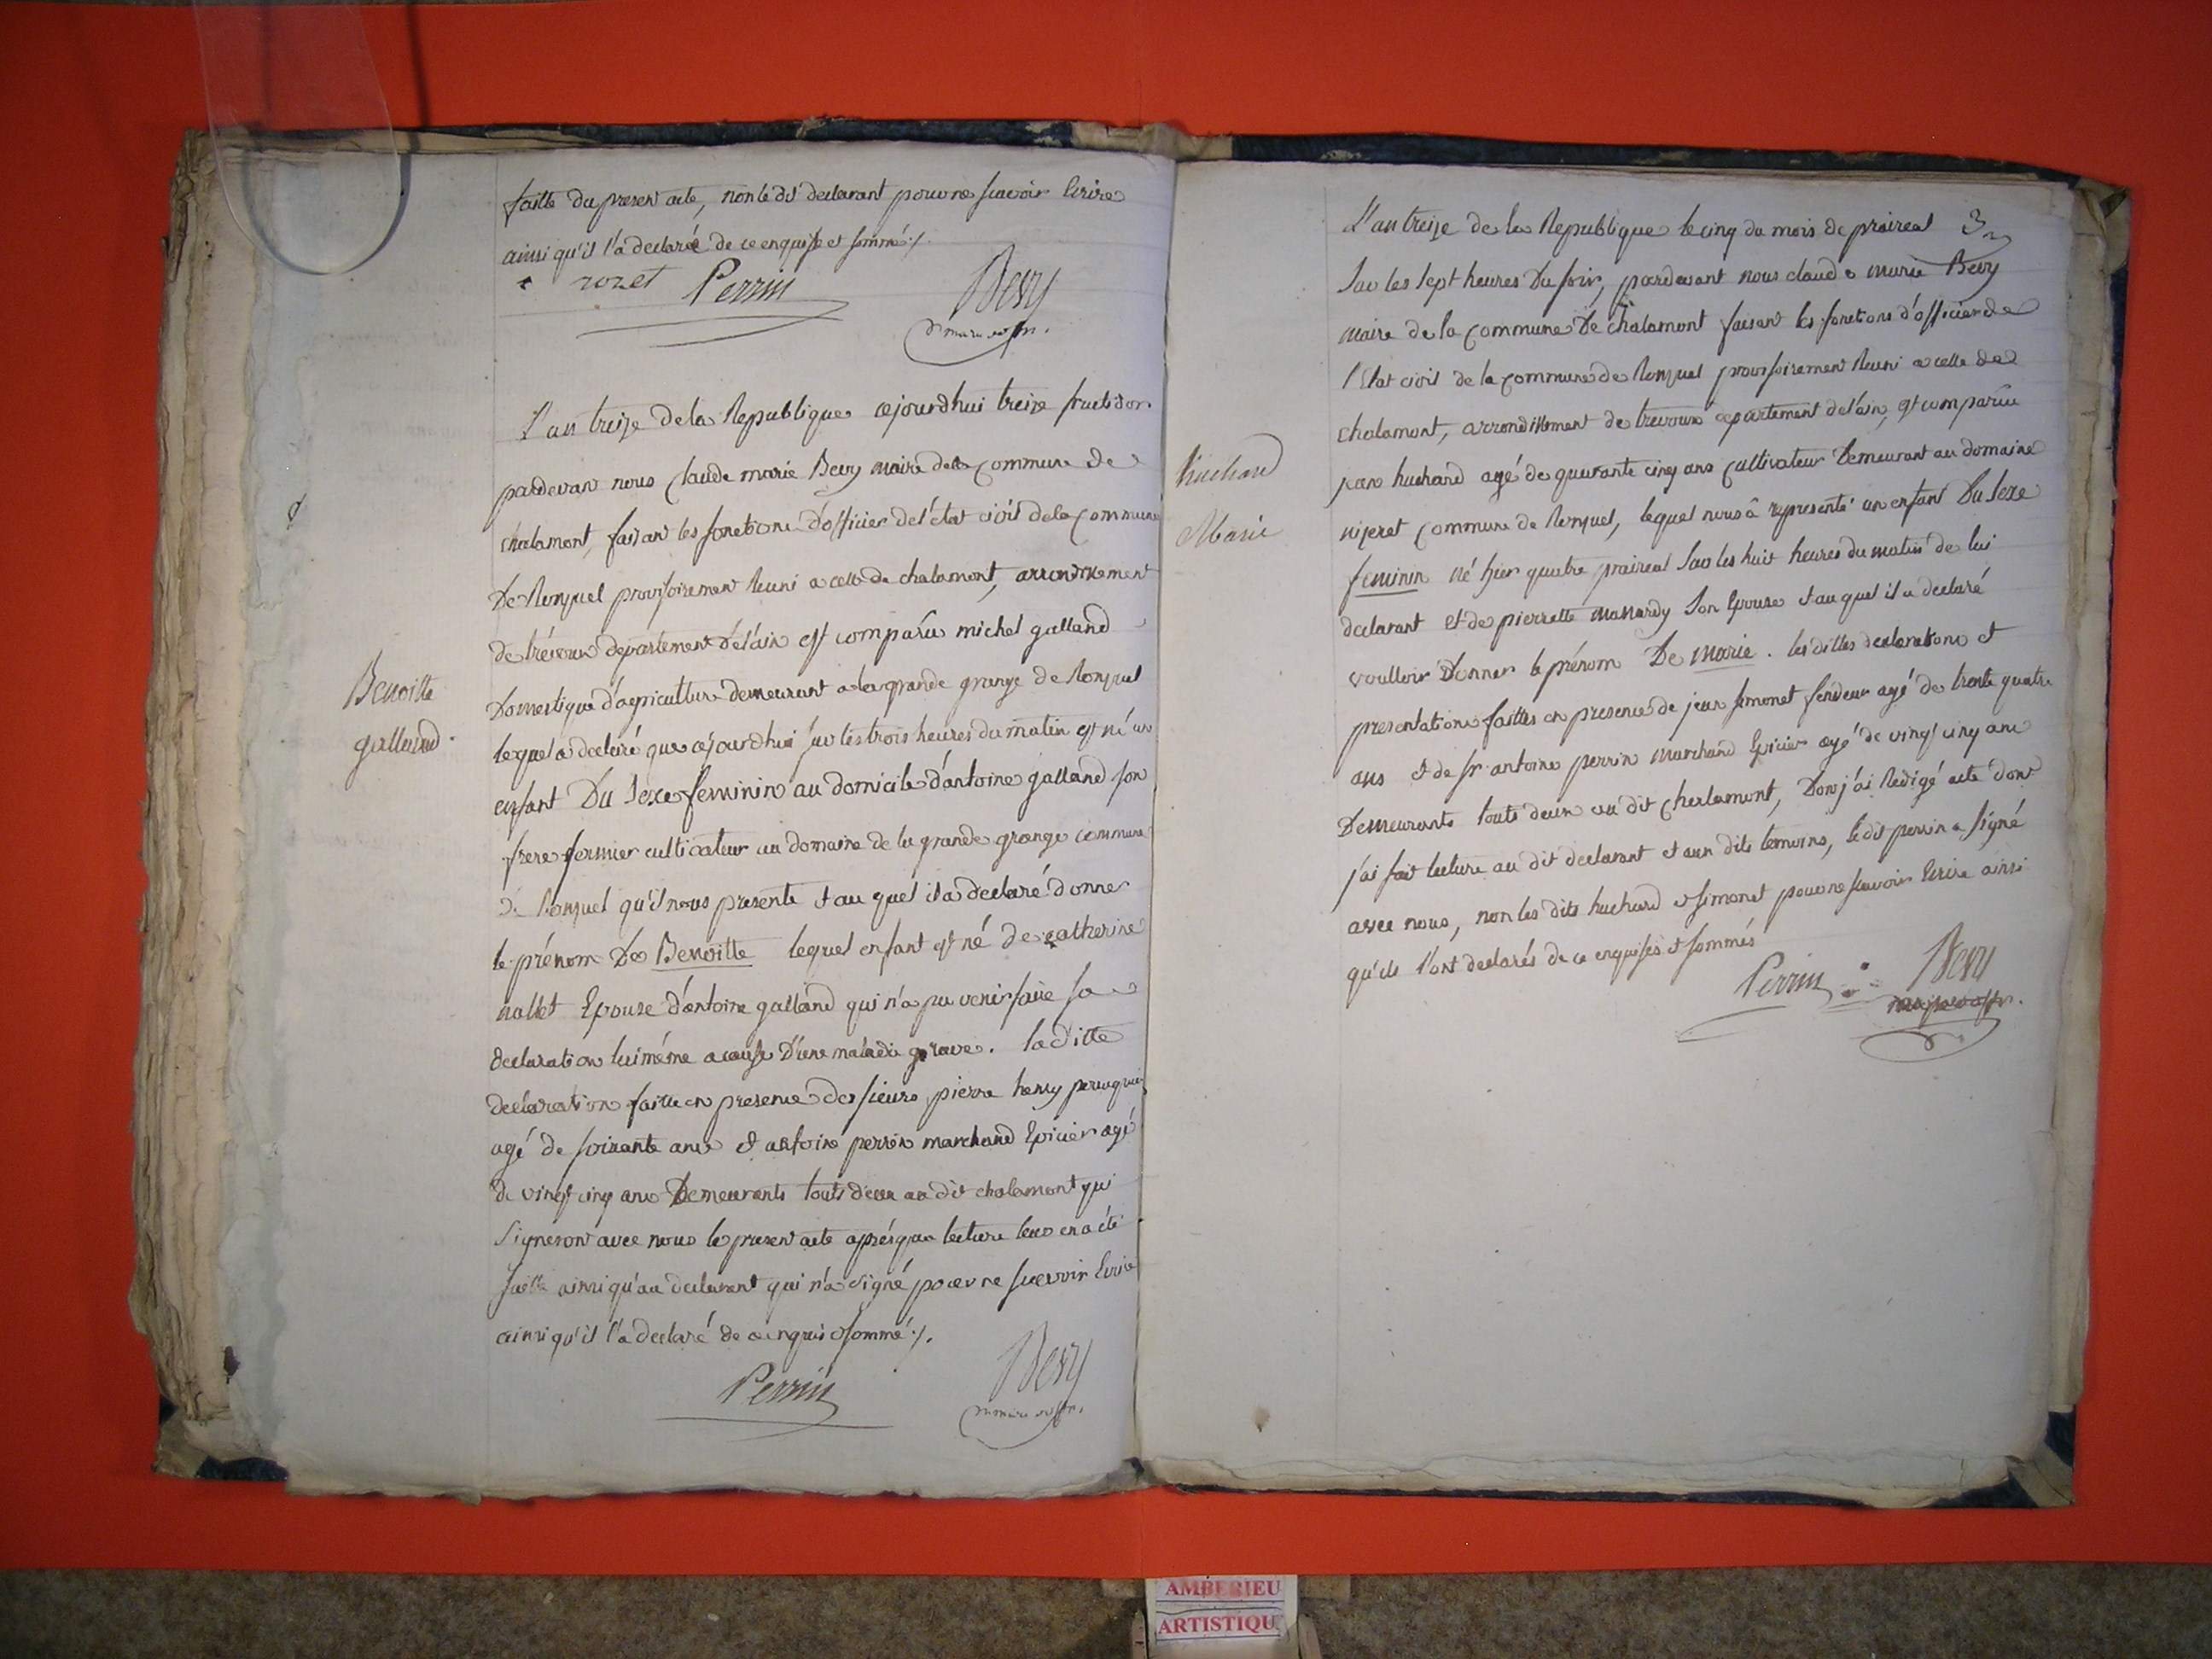 faitte du present acte, non le dit declarant pour ne scavoir Ecrire
ainsi qu'il l'a declaré de ce enquise et sommé ./.
rozet Perrin Bevy
L'an treize de la Republique cejourdhui treize fructidor
pardevant nous Claude marie Bevy maire de la commune de
chalamont, faisant les fonctions d'officier de l'état civil de la commune
De Ronzuel provisoirement Reuni a celle de chalamont, arrondissement
de trévoux departement de l'ain est comparu michel galland
Domestique d'agriculture demeurant a la grande grange de Ronzuel
Benoitte
galland
lequel a declaré que cejourdhui sur les trois heures du matin est né un
enfant Du Sexe feminin au domicile d'antoine galland son
frere fermier cultivateur au domaine de la grande grange commune
de Ronzuel qu'il nous presente et au quel il a declaré donner
le prénom De Benoitte lequel enfant est né de catherine
nallet Epouse d'antoine galland qui n'a pu venir faire sa
declaration lui même a cause D'une maladie grave. la ditte
declaration faitte en presence des sieurs pierre henry peruquier
agé de soixante ans et antoine perrin marchand Epicier agé
de vingt cinq ans Demeurants touts deux au dit chalamont qui
Signeront avec nous le present acte après que lecture leur en a été
faitte ainsi qu'au declarant qui n'a signé pour ne scavoir Ecrire
ainsi qu'il l'a declaré de ce enquis et sommé ./.
Perrin Bevy
3
L'an treize de la Republique le cinq du mois de praireal
Sur les sept heures Du soir, pardevant nous claude marie Bevy
maire de la commune De chalamont faisant les fonctions d'officier de
l'Etat civil de la commune de Ronzuel provisoirement Reuni a celle de
chalamont, arrondissement de trevoux departement de l'ain, est comparu
huchard
Marie
jean huchard agé de quarante cinq ans cultivateur Demeurant au domaine
nizeret commune de Ronzuel, lequel nous a representé un enfant Du Sexe
feminin né hier quatre praireal Sur les huit heures du matin de lui
declarant et de pierrette manardy Son Epouse et au quel il a declaré
voulloir Donner le prénom De Marie. les dittes declarations et
presentations faittes en presence de jean simonet fendeur agé de trente quatre
ans et de sr antoine perrin marchand Epicier agé de vingt cinq ans
Demeurants touts deux au dit Chalamont, Dont j'ai Redigé acte dont
j'ai fait lecture au dit declarant et aux dits temoins, le dit perrin a signé
avec nous, non les dits huchard et simonet pour ne scavoir Ecrire ainsi
qu'ils l'ont declarés de ce enquises et sommés
Perrin Bevy
AMBERIEU
ARTISTIQU